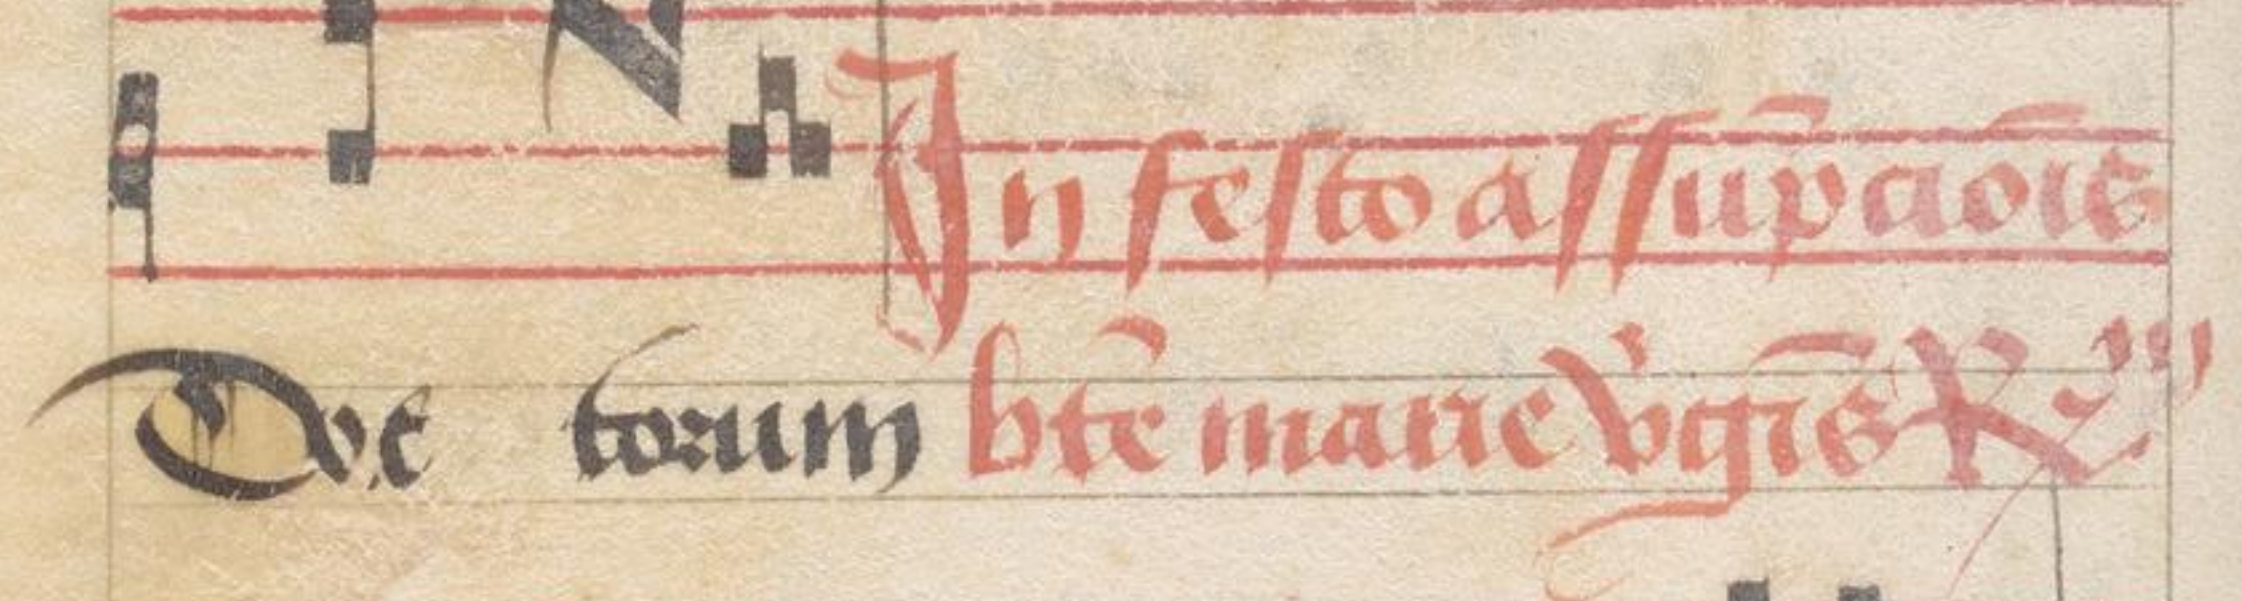 In festo assūpc̄ōis
Doc torum bt̄e marie v̓gīs R